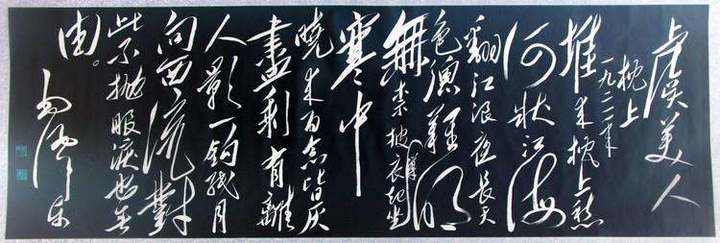 虞美人
枕上
一九二一年
堆来枕上愁
何状江海
翻波浪夜长天
色怎难明
無奈披衣起坐
薄寒中
晓来百念皆灰
盡剩有離
人影一钩残月
向西流對
此不抛眼淚也無
由。
毛泽东